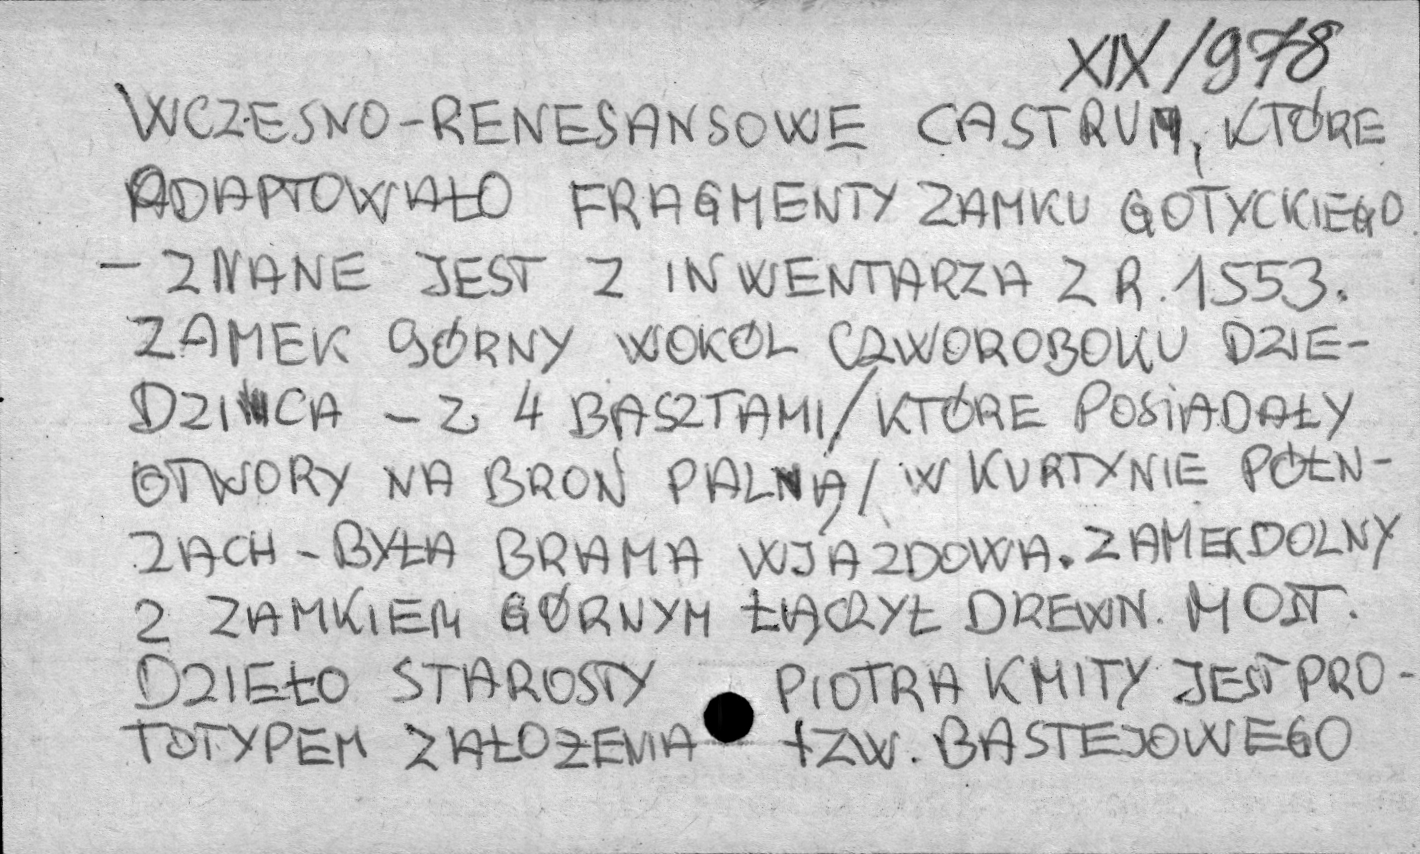 XIX/978
WCZESNO-RENESANSOWE CASTRUM, KTÓRE
ADAPTOWAŁO FRAGMENTY ZAMKU GOTYCKIEGO
– ZNANE JEST Z INWENTARZA Z R. 1553.
ZAMEK GÓRNY WOKÓŁ CZWOROBOKU DZIE-
DZIŃCA – Z 4 BASZTAMI/KTÓRE POSIADAŁY
OTWORY NA BROŃ PALNĄ/ W KURTYNIE PÓŁN-
ZACH – BYŁA BRAMA WJAZDOWA. ZAMEK DOLNY
Z ZAMKIEM GÓRNYM ŁĄCZYŁ DREWN. MOST.
DZIEŁO STAROSTY PIOTRA KMITY JEST PRO-
TOTYPEM ZAŁOŻENIA tZW. BASTEJOWEGO